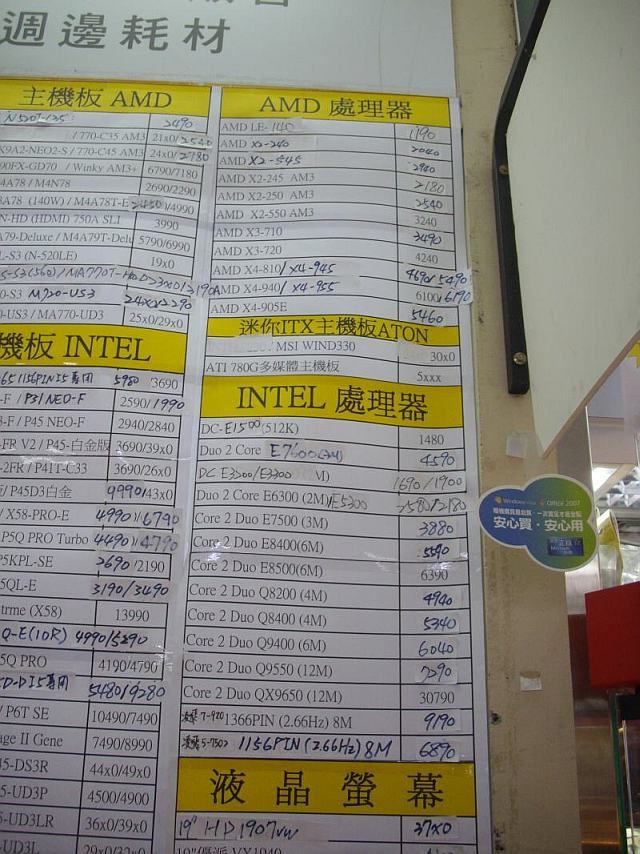 週邊耗材
主機板 AMD
N520I-135: 2490
/ 770-C35 AM3 21x0/2540
K9A2-NEO2-S / 770-C45 AM3 24x0/2780
90FX-GD70 / Winky AM3+ 6790/7180
4A78 / M4N78 2690/2290
A78 (140W) / M4A78T-E /4990
N-HD (HDMI) 750A SLI 3990
A79-Deluxe / M4A79T-Delu 5790/6990
L-S3 (N-520LE) 19x0
-S3 M720-US3
-US3 / MA770-UD3 25x0/29x0
機板 INTEL
1156PIN I5專用 5980 3690
-F / P31 NEO-F 2590/1990
-F / P45 NEO-F 2940/2840
-FR V2 / P45-白金版 3690/39x0
-2FR / P41T-C33 3690/26x0
/ P45D3白金 4990/43x0
/ X58-PRO-E 4990/6790
P5Q PRO Turbo 4490/4790
P5KPL-SE 2690/2190
5QL-E 3190/3490
treme (X58) 13990
Q-E(10R) 4990/5290
5Q PRO 4190/4790
D-DI5專用 5480/9280
/ P6T SE 10490/7490
age II Gene 7490/8990
45-DS3R 44x0/49x0
5-UD3P 4500/4900
5-UD3LR 36x0/39x0
-UD3L 29x0/32x0
AMD 處理器
AMD LE-140 1190
AMD X2-240 2040
AMD X2-545 2940
AMD X2-245 AM3 2180
AMD X2-250 AM3 2540
AMD X2-550 AM3 3240
AMD X3-710 3490
AMD X3-720 4240
AMD X4-810/X4-945 4690/5490
AMD X4-940/X4-955 6100/6190
AMD X4-905E 5460
迷你ITX主機板ATON
MSI WIND330 30x0
ATI 780G多媒體主機板 5xxx
INTEL 處理器
DC-E1500(512K) 1480
Duo 2 Core E7600(3M) 4590
DC E3200/E3300 M) 1690/1900
Duo 2 Core E6300 (2M)/E5300 2580/2180
Core 2 Duo E7500 (3M) 3880
Core 2 Duo E8400(6M) 5590
Core 2 Duo E8500(6M) 6390
Core 2 Duo Q8200 (4M) 4940
Core 2 Duo Q8400 (4M) 5340
Core 2 Duo Q9400 (6M) 6040
Core 2 Duo Q9550 (12M) 7290
Core 2 Duo QX9650 (12M) 30790
7-920 1366PIN (2.66Hz) 8M 9190
5-750 1156PIN (2.66Hz) 8M 6890
液晶螢幕
19" HD1907vw 37x0
19"優派 VX1940
Windows Office 2007
安心買·安心用